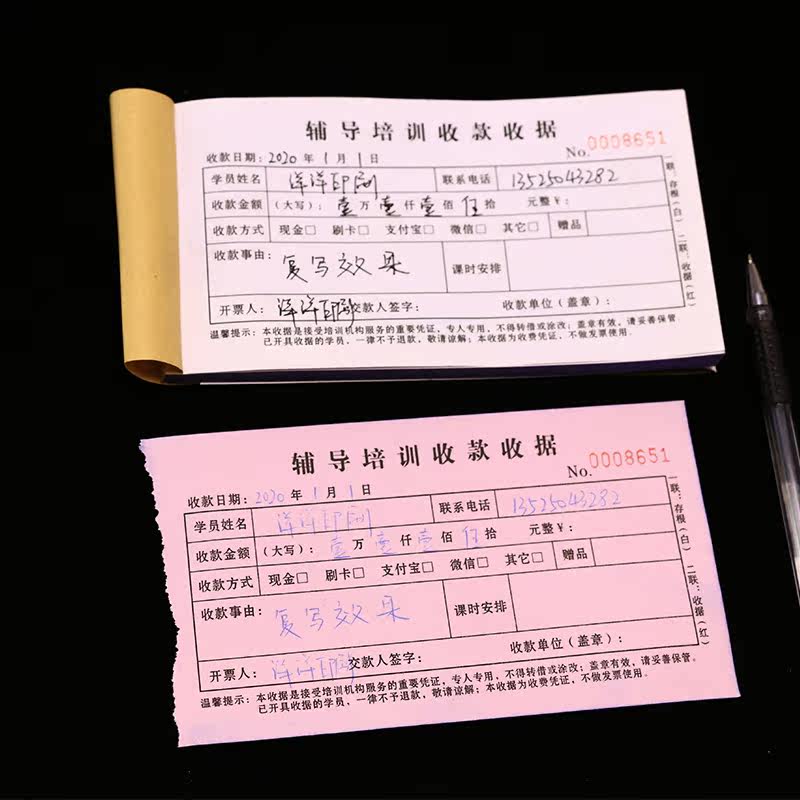 辅导培训收款收据
No. 0008651
收款日期：2020年1月1日
学员姓名 洋洋印刷 联系电话 13525043282
收款金额 （大写）：壹万壹仟壹佰伍拾 元整￥：
收款方式 现金□ 刷卡□ 支付宝□ 微信□ 其它□ 赠品
收款事由：复写效果 课时安排
开票人：洋洋印刷 交款人签字： 收款单位（盖章）：
温馨提示：本收据是接受培训机构服务的重要凭证，专人专用，不得转借或涂改；盖章有效，请妥善保管。
已开具收据的学员，一律不予退款，敬请谅解；本收据为收费凭证，不做发票使用。
一联：存根（白） 二联：收据（红）
辅导培训收款收据
No. 0008651
收款日期：2020年1月1日
学员姓名 洋洋印刷 联系电话 13525043282
收款金额 （大写）：壹万壹仟壹佰伍拾 元整￥：
收款方式 现金□ 刷卡□ 支付宝□ 微信□ 其它□ 赠品
收款事由：复写效果 课时安排
开票人：洋洋印刷 交款人签字： 收款单位（盖章）：
温馨提示：本收据是接受培训机构服务的重要凭证，专人专用，不得转借或涂改；盖章有效，请妥善保管。
已开具收据的学员，一律不予退款，敬请谅解；本收据为收费凭证，不做发票使用。
一联：存根（白） 二联：收据（红）